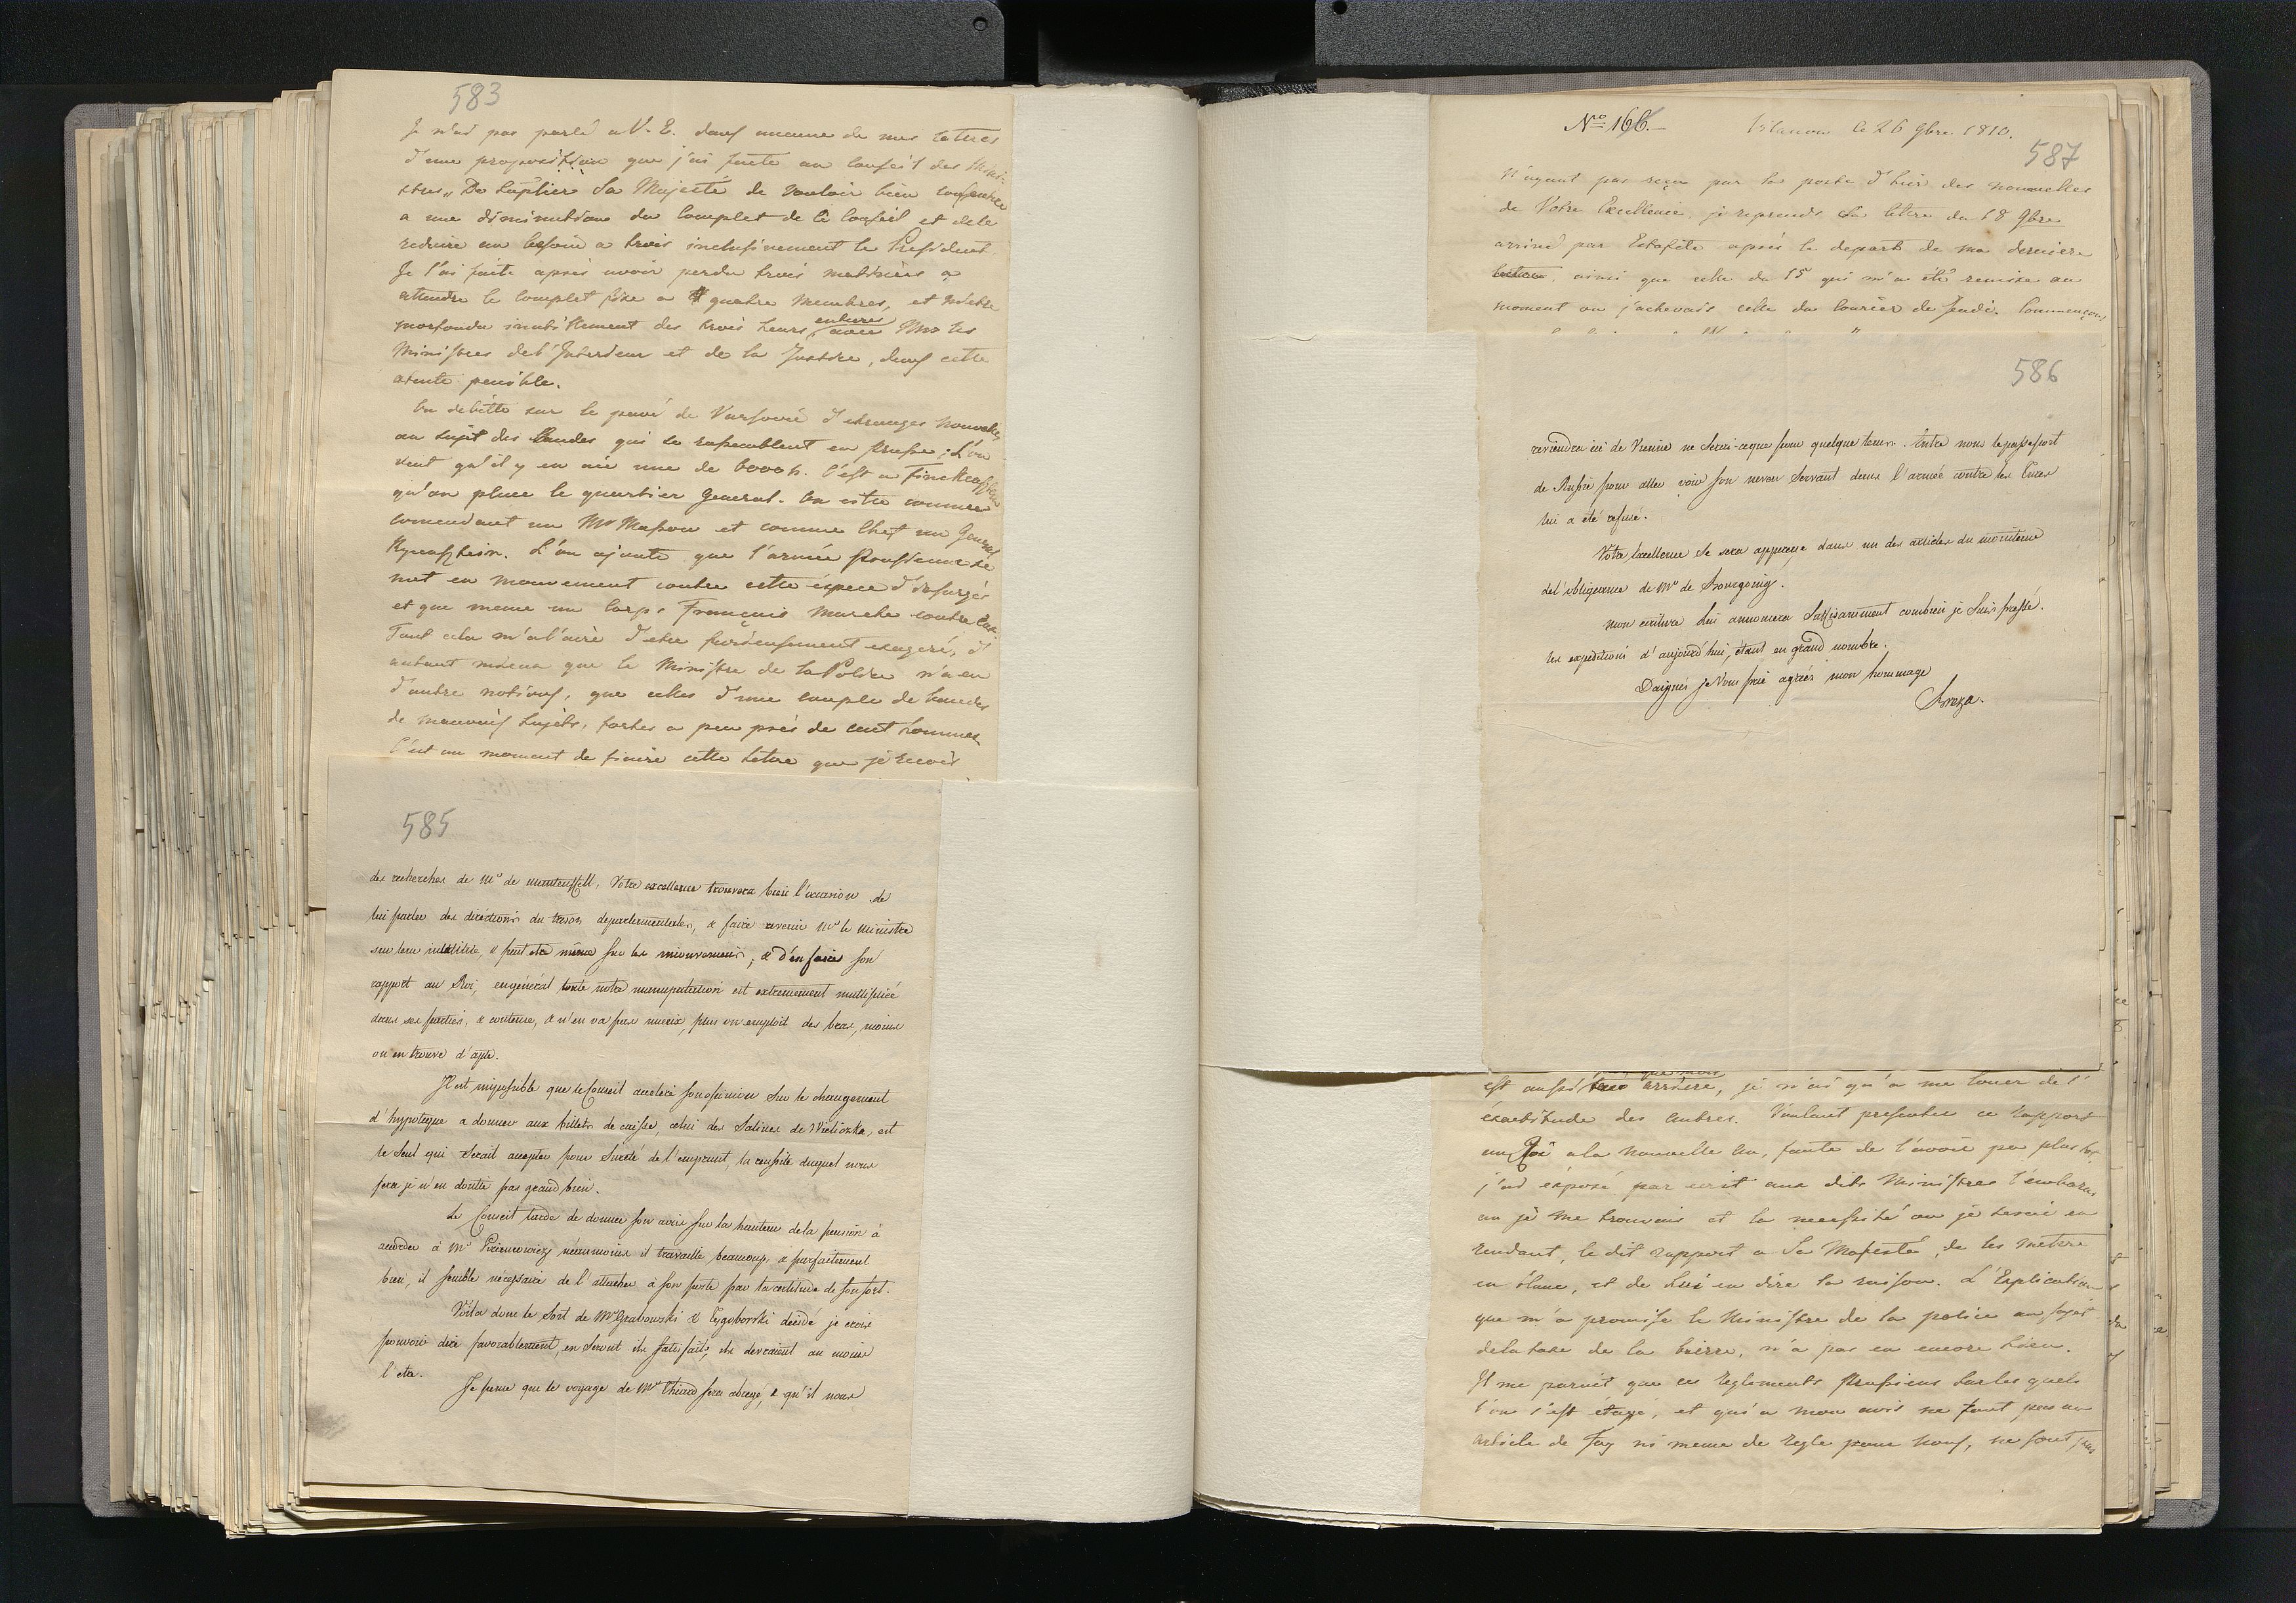 583
Je n'ai pas parlé a V. E. dans aucune de mes lettres
d'une proposition que j'ai faite au Conseil des Mini-
stres „ De Suplier Sa Majesté de vouloir bien consentir
a une diminution du Complet de ce Conseil et de le
reduire au besoin a trois inclusivement le President.
Je l'ai faite après avoir perdu trois matinées a
attendre le Complet fixé a quatre Membres, et m'etre
morfondu inutilement des trois heures entieres avec Mrs les
Ministres de l'Interieur et de la Justice, dans cette
atente penible.
On debitte sur le pavé de Varsovie d'etranges nouvelles
au sujet des bandes qui se rassemblent en Prusse; L'on
veut qu'il y en aie une de 6000 h. C'est a
qu'on place le quartier General. On cite comme
Comendant un Mr Masson et comme Chef un General
L'on ajoute que l'armée Prussienne se
met en mouvement contre cette espece d'Insurgés
et que meme un Corps François marche contre Eux.
Tout cela m'a l'air d'etre furieusement exageré, d'
autant mieux que le Ministre de la Police n'a eu
d'autre notions, que celles d'une couple de bandes
de mauvais sujets, fortes a peu près de cent hommes
C'est au moment de finire cette lettre que je recois
585
des recherches de Mr de Manteuffell, Votre excellence trouvera bien l'occasion de
lui parler des directions du tresor departementales, & faire revenir Mr le Ministre
sur leur inutilité, & peut etre même sur les ; & d'en faire son
rapport au Roi, en général toute notre manipulation est extremement multipliée
dans ses parties, & couteuse, & n'en va pas mieux, plus on emploit des bras, moins
on en trouve d'apte.
Il est impossible que le Conseil accelere son opinion sur le changement
d'hypoteque a donner aux billets de caisse, celui des Salines de Wieliczka, est
le seul qui serait accepter pour Sureté de l'emprunt, la reussite duquel nous
fera je n'en doute pas grand bien.
Le Conseil tarde de donner son avis sur la hauteur de la pension à
accorder à Mr néanmoins il travaille beaucoup, & parfaitement
bien, il semble nécessaire de l'attacher à son poste par la certitude de son sort.
Voila donc le Sort de Mr Grabowski & Tęgoborski decidé je crois
pouvoir dire favorablement, en seront ils satisfaits, ils devraient au moins
l'etre.
Je pense que le voyage de Mr Thiard sera abregé, & qu'il nous
No 166.
Vilanow le 26 9bre 1810.
587
N'ayant pas reçu par la poste d'hier des nouvelles
de Votre Excellence, je reprends Sa lettre du 18 9bre
arrivé par Estafete après le depart de ma derniere
lettre, ainsi que celle du 15 qui m'a été remise au
moment ou j'achevais celle du Courier de Jeudi. Commençons
586
reviendra ici de Vienne ne Serai-ceque pour quelque tems. Entre nous le passeport
de Russie pour aller voir son neveu Servant dans l'armée contre les Turcs
lui a été refusé.
Votre Excellence se sera apperçue dans un des articles du moniteur
de l'obligeance de Mr de Bourgoing.
mon ecriture Lui annoncera suffisamment combien je Suis pressé.
les expeditions d'aujourd'hui, étant en grand nombre.
Daignés je Vous prie agréer mon hommage
Breza.
est aussi arriere, je n'ai qu'a me louer de l'
exactitude des autres. Voulant presenter ce rapport
au Roi a la nouvelle An, faute de l'avoir pu plus tot,
j'ai exposé par ecrit aux dits Ministres l'embaras
ou je me trouvais et la necessité ou je serai en
rendant, le dit rapport a Sa Majesté, de les mettre
en blanc, et de Lui en dire la raison. L'Explication
que m'a promise le Ministre de la police au sujet
de la taxe de la bierre, n'a pas eu encore lieu.
Il me parait que ces reglements Prussiens sur les quels
l'on s'est etayé, et qui a mon avis ne font pas un
article de foy ni meme de regle pour nous, ne sont pas